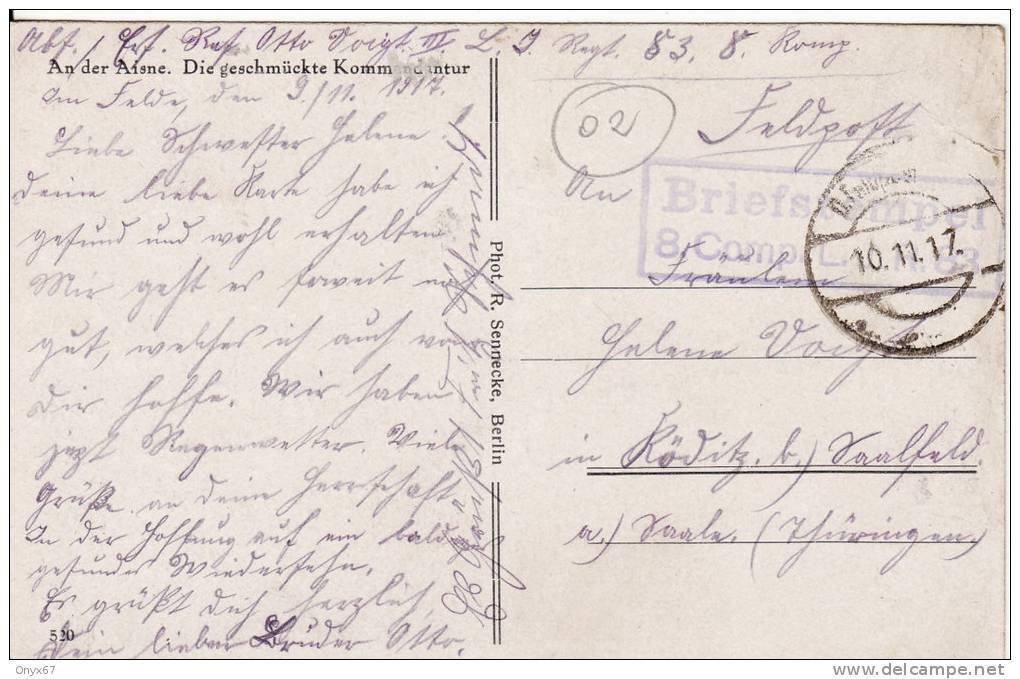 Abs. Ers. Res. Otto Voigt III L. I Regt. 83, 8. Komp.
An der Aisne. Die geschmückte Kommandantur
Im Felde, den 9./11. 1917.
Liebe Schwester Helene!
deine liebe Karte habe ich
gesund und wohl erhalten
Mir geht es soweit noch
gut, welches ich auch von
Dir hoffe. Wir haben
jetzt Regenwetter. Viele
Grüße an deine Herrschaft
In der Hoffnung auf ein bald
gesundes Wiedersehn.
Es grüßt dich herzlich
Dein lieber Bruder Otto.
520
Phot. R. Sennecke, Berlin
02
Feldpost
An
Briefstempel
8. Comp. L. 83
10.11.17.
Fräulein
Helene Voigt
in Köditz. b.) Saalfeld.
a.) Saale. (Thüringen.)
Onyx67